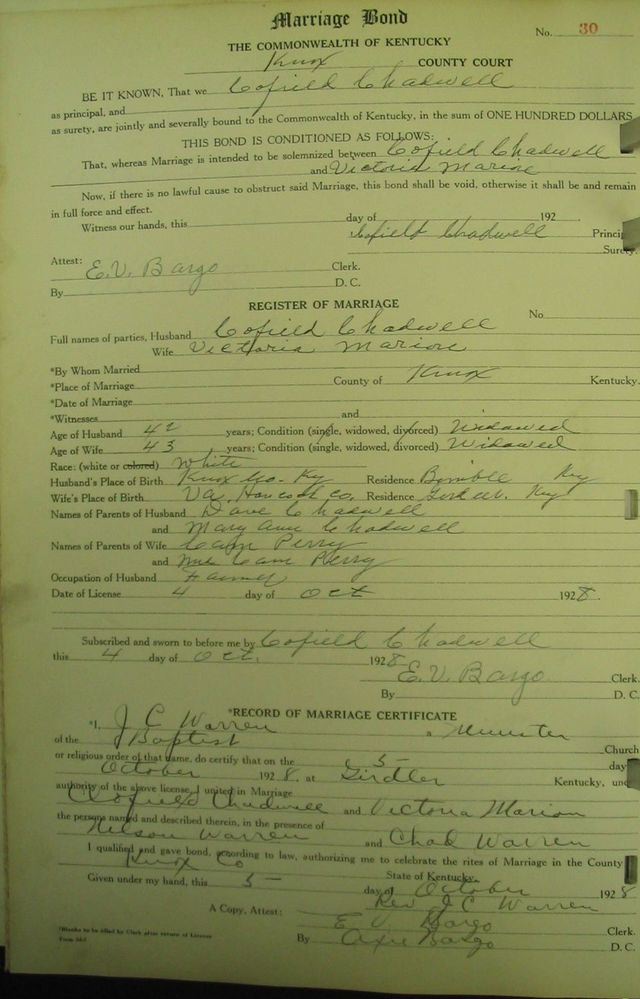 Marriage Bond
No. 30
THE COMMONWEALTH OF KENTUCKY
Knox COUNTY COURT
BE IT KNOWN, That we Cofield Chadwell
as principal, and
as surety, are jointly and severally bound to the Commonwealth of Kentucky, in the sum of ONE HUNDRED DOLLARS
THIS BOND IS CONDITIONED AS FOLLOWS:
That, whereas Marriage is intended to be solemnized between Cofield Chadwell
and Victoria Marion
Now, if there is no lawful cause to obstruct said Marriage, this bond shall be void, otherwise it shall be and remain
in full force and effect.
Witness our hands, this day of 192
Cofield Chadwell Princip
Surety.
Attest:
E.V. Bargo Clerk.
By D. C.
REGISTER OF MARRIAGE
No
Full names of parties, Husband Cofield Chadwell
Wife Victoria Marion
*By Whom Married
*Place of Marriage County of Knox Kentucky.
*Date of Marriage
*Witnesses and
Age of Husband 42 years; Condition (single, widowed, divorced) Widowed
Age of Wife 43 years; Condition (single, widowed, divorced) Widowed
Race: (white or colored) White
Husband's Place of Birth Knox Co. Ky Residence Bimble Ky
Wife's Place of Birth Va. Hancock Co. Residence Ky
Names of Parents of Husband Dave Chadwell
and Mary Ann Chadwell
Names of Parents of Wife Cam Perry
and Mrs Cam Perry
Occupation of Husband Farmer
Date of License 4 day of Oct 1928.
Subscribed and sworn to before me by Cofield Chadwell
this 4 day of Oct. 1928
E.V. Bargo Clerk.
By D. C.
*RECORD OF MARRIAGE CERTIFICATE
*I, J C Warren a Minister
of the Baptist Church
or religious order of that name, do certify that on the 5 day
October 1928, at Girdler Kentucky, und
authority of the above license, I united in Marriage
Cofield Chadwell and Victoria Marion
the persons named and described therein, in the presence of
Nelson Warren and Chad Warren
I qualified and gave bond, according to law, authorizing me to celebrate the rites of Marriage in the County
Knox Co State of Kentucky.
Given under my hand, this 5 day of October 1928
Rev J C Warren
A Copy, Attest: E V Bargo Clerk.
By Bargo D. C.
*Blanks to be filled by Clerk after return of License